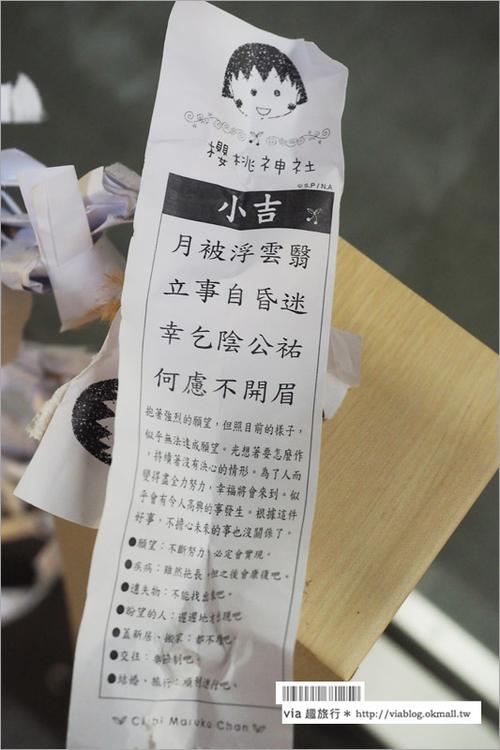 櫻桃神社
©S.P/N.A
小吉
月被浮雲翳
立事自昏迷
幸乞陰公祐
何慮不開眉
抱著強烈的願望,但照目前的樣子,
似乎無法達成願望。光想著要怎麼作
,持續著沒有決心的情形。為了人而
變得盡全力努力,幸福將會來到。似
乎會有令人高興的事發生。根據這件
好事,不擔心未來的事也沒關係了。
●願望:不斷努力 必定會實現。
●疾病:雖然拖長,但之後會康復吧。
●遺失物:不能找出來吧。
●盼望的人:遲遲地才出現吧
●蓋新居、搬家:都不壞吧
●交往: 節制吧。
●結婚、旅行:順利進行吧。
Chibi Maruko Chan
via 趣旅行* http://viablog.okmall.tw